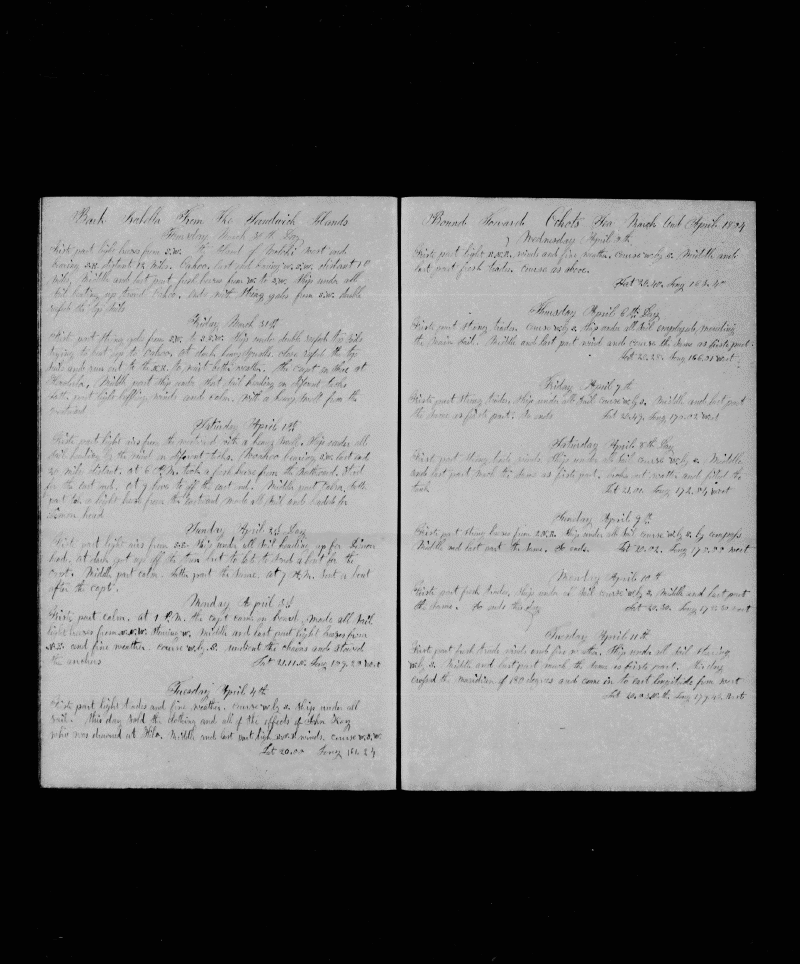 Bark Isabella From The Sandwich Islands
Thursday March 30th Day
Firste part light breeses from S.W. The Island of Moloki West end
baring S.W. distant 18 miles. Oahoo, east end baring W.S.W. distant
miles, Middle and last part fresh breeses from W. to S.W. Ship under all
sail beating up toward Oahoo. Ends with strong gales from S.W. double
reefed the top sails
Friday March 31th
Firste part strong gales from S.W. to S.S.W. Ship under double reefed top sails
trying to beat up to Oahoo. at dark heavy squalls, close reefed the top
sails and run out to the N.E. to wait better weather. The Capt on shore at
Honolulu, Middle part ship under short sail heading on different tacks
Latter part light baffling winds and calm. with a heavy swell from the
westward
Saturday April 1th
Firste part light airs from the westward with a heavy swell. Ship under all
sail heading by the wind on different tacks. Woahoo bearing S.W. east end
20 miles distant. at 6 P.M. took a fresh breese from the Northward. Steerd
for the east end. at 9 hove to off the east end. Middle part calm. Latter
part took a light breese from the Eastward made all sail and headed for
Dimon head
Sunday April 2d Day
Firste part light airs from S.E. Ship under all sail heading up for Dimon
head. at dark got up off the town but to late to send a boat for the
Capt. Middle part calm. Latter part the same. at 7 A.M. sent a boat
after the Capt.
Monday April 3d
Firste part calm. at 1 P.M. the capt came on board, made all sail
light breeses from N.N.W. Steering W. Middle and last part light breeses from
N.E. and fine weather. course W. by S. unbent the chains and stowed
the anchors Lat 21.11.N. Long 159.29 West
Tuesday April 4th
Firste part light trades and fine weather. course W. by S. Ship under all
sail. This day sold the clothing and all of the effects of John King
who was drowned at Hilo. Middle and last part light winds. course W.S.W.
Lat 20.00 Long 161.24
Bound Towards Ochots Sea March And April 1854
Wednesday April 5th
Firste part light N.N.E. winds and fine weather. course W. by S. Middle and
last part fresh trades. course as above.
Lat 20.40. Long 163.40
Thursday April 6th Day
Firste part strong trades. course W. by S. Ship under all sail employed mending
the main sail. Middle and last part wind and course the same as firste part.
Lat 20.28. Long 166.01 West
Friday April 7th
Firste part strong trades, Ship under all sail course W. by S. Middle and last part
the same as firste part. So ends Lat 20.47. Long 170.02 West
Saturday April 8th Day
Firste part strong trade winds. Ship under all sail course W. by S. Middle
and last part much the same as firste part. broke out water and filled the
Lat 21.00 Long 172.54 West
Sunday April 9th
Firste part strong breeses from E.N.E. Ship under all sail course W. by S. by compass
Middle and last part the same. So ends. Lat 20.02. Long 175.00 West
Monday April 10th
Firste part fresh trades, Ship under all sail course W. by S. Middle and last part
the same. So ends this day Lat 20.20. Long 177.20 West
Tuesday April 11th
Firste part fresh trade winds and fine weather. Ship under all sail steering
W. by S. Middle and last part much the same as firste part. this day
crossed the meridian of 180 degrees and came in to east longitude from west
Lat 20.03.N. Long 179.43 West